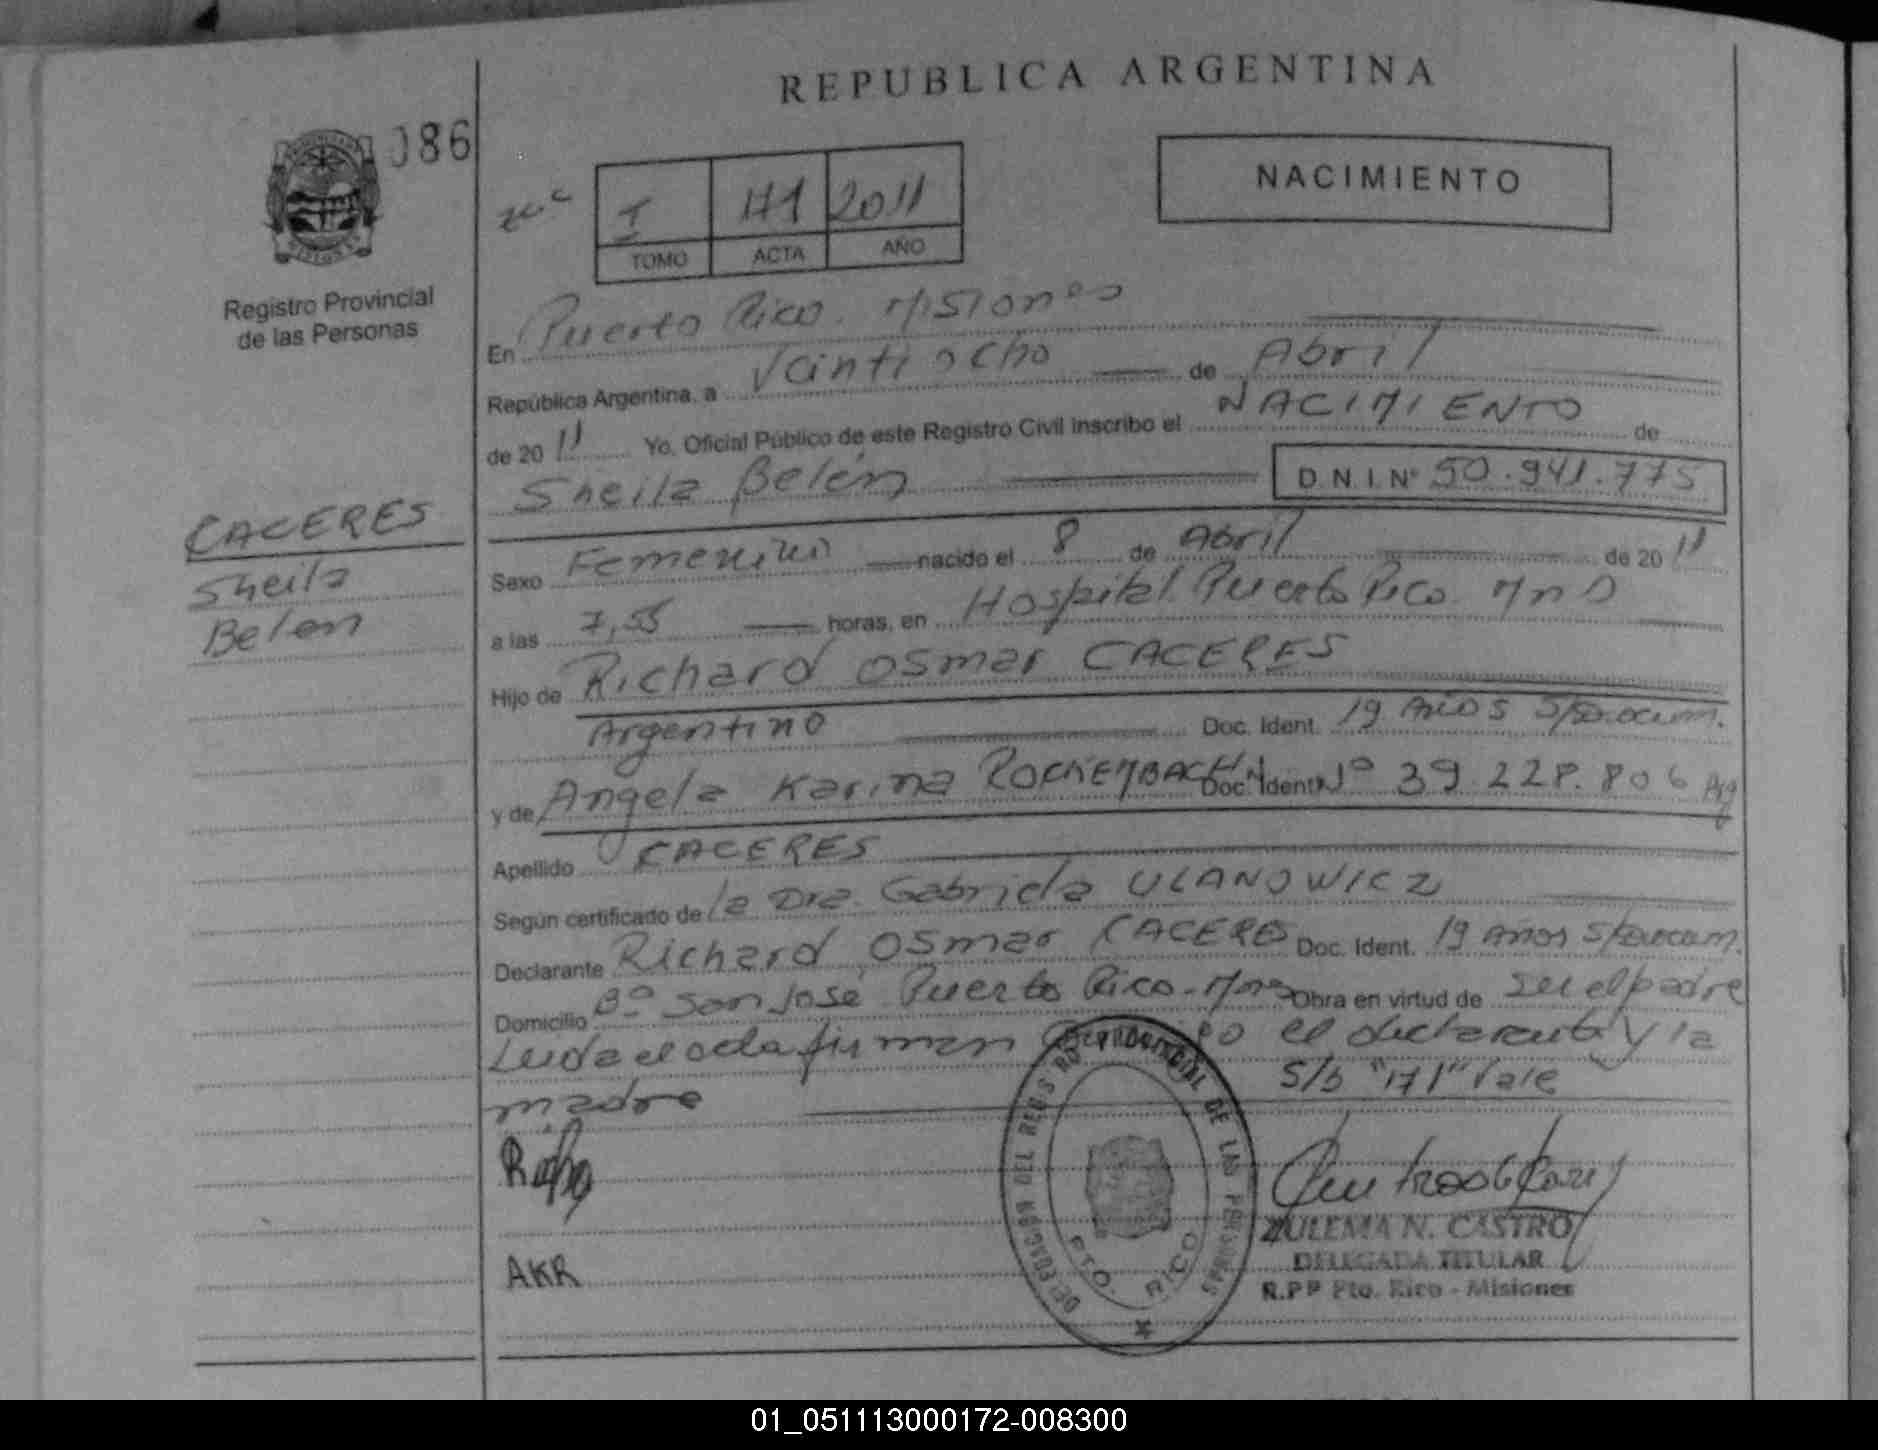 REPUBLICA ARGENTINA
086
NACIMIENTO
I 171 2011
TOMO ACTA AÑO
Registro Provincial
de las Personas
En Puerto Rico. Misiones
República Argentina, a Veintiocho de Abril
de 2011 Yo, Oficial Público de este Registro Civil Inscribo el NACIMIENTO de
Sheila Belén D.N.I.Nº 50.941.775
CACERES
Sheila
Belen
Sexo Femenino nacido el 8 de Abril de 2011
a las 7,55 horas, en Hospital Puerto Rico. Mnes
Hijo de Richard Osmar CACERES
Argentino Doc. Ident. 19 Años S/Docum.
y de Angela Karina ROCKEMBACH Doc. Ident. Nº 39.228.806 Arg
Apellido CACERES
Según certificado de la Dra. Gabriela ULANOWICZ
Declarante Richard Osmar CACERES Doc. Ident. 19 Años S/Docum.
Domicilio Bº San José Puerto Rico-Mnes Obra en virtud de Ser el padre
Leida el acta firman el declarante y la
madre S/b "171" Vale
DELEGACION DEL REGISTRO PROVINCIAL DE LAS PERSONAS
PTO. RICO
AKR
ZULEMA N. CASTRO
DELEGADA TITULAR
R.P.P Pto. Rico - Misiones
01_051113000172-008300